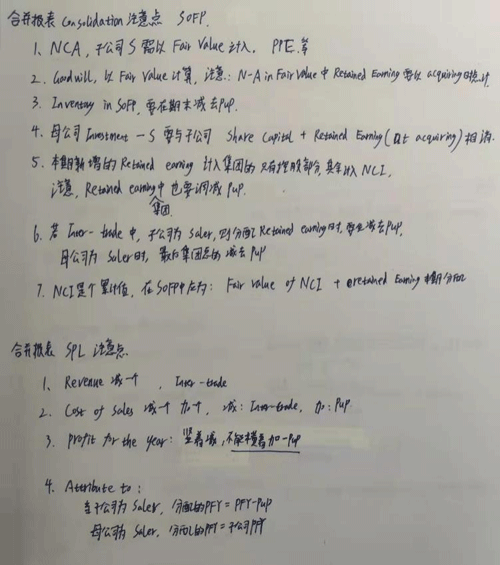 合并报表 Consolidation 注意点 SOFP.
1、NCA, 子公司 S 需以 Fair Value 计入. PPE 等
2、Goodwill, 以 Fair Value 计算, 注意: N-A in Fair Value 中 Retained Earning 要以 acquiring 时候计
3、Inventory in SOFP, 要在期末减去 PUP.
4、母公司 Investment - S 要与子公司 Share Capital + Retained Earning (at acquiring) 相消.
5、本期新增的 Retained earning 计入集团的只有控股部分, 其余计入 NCI,
注意, Retained earning 中也要调减 PUP.
集团
6、若 Inter-trade 中, 子公司为 Saler, 则分配 Retained earning 时, 要先减去 PUP,
母公司为 Saler 时, 集团总的减去 PUP
7、NCI 是个累计值, 在 SOFP 中应为: Fair value of NCI + Retained Earning 本期分配
合并报表 SPL 注意点.
1、Revenue 减一个, Inter-trade
2、Cost of sales 减一个加一个, 减: Inter-trade, 加: PUP
3、Profit for the year: 竖着减, 不能横着加-PUP
4、Attribute to:
当子公司为 Saler, 分配的 PFY = PFY-PUP
母公司为 Saler, 分配的 PFY = 子公司 PFY